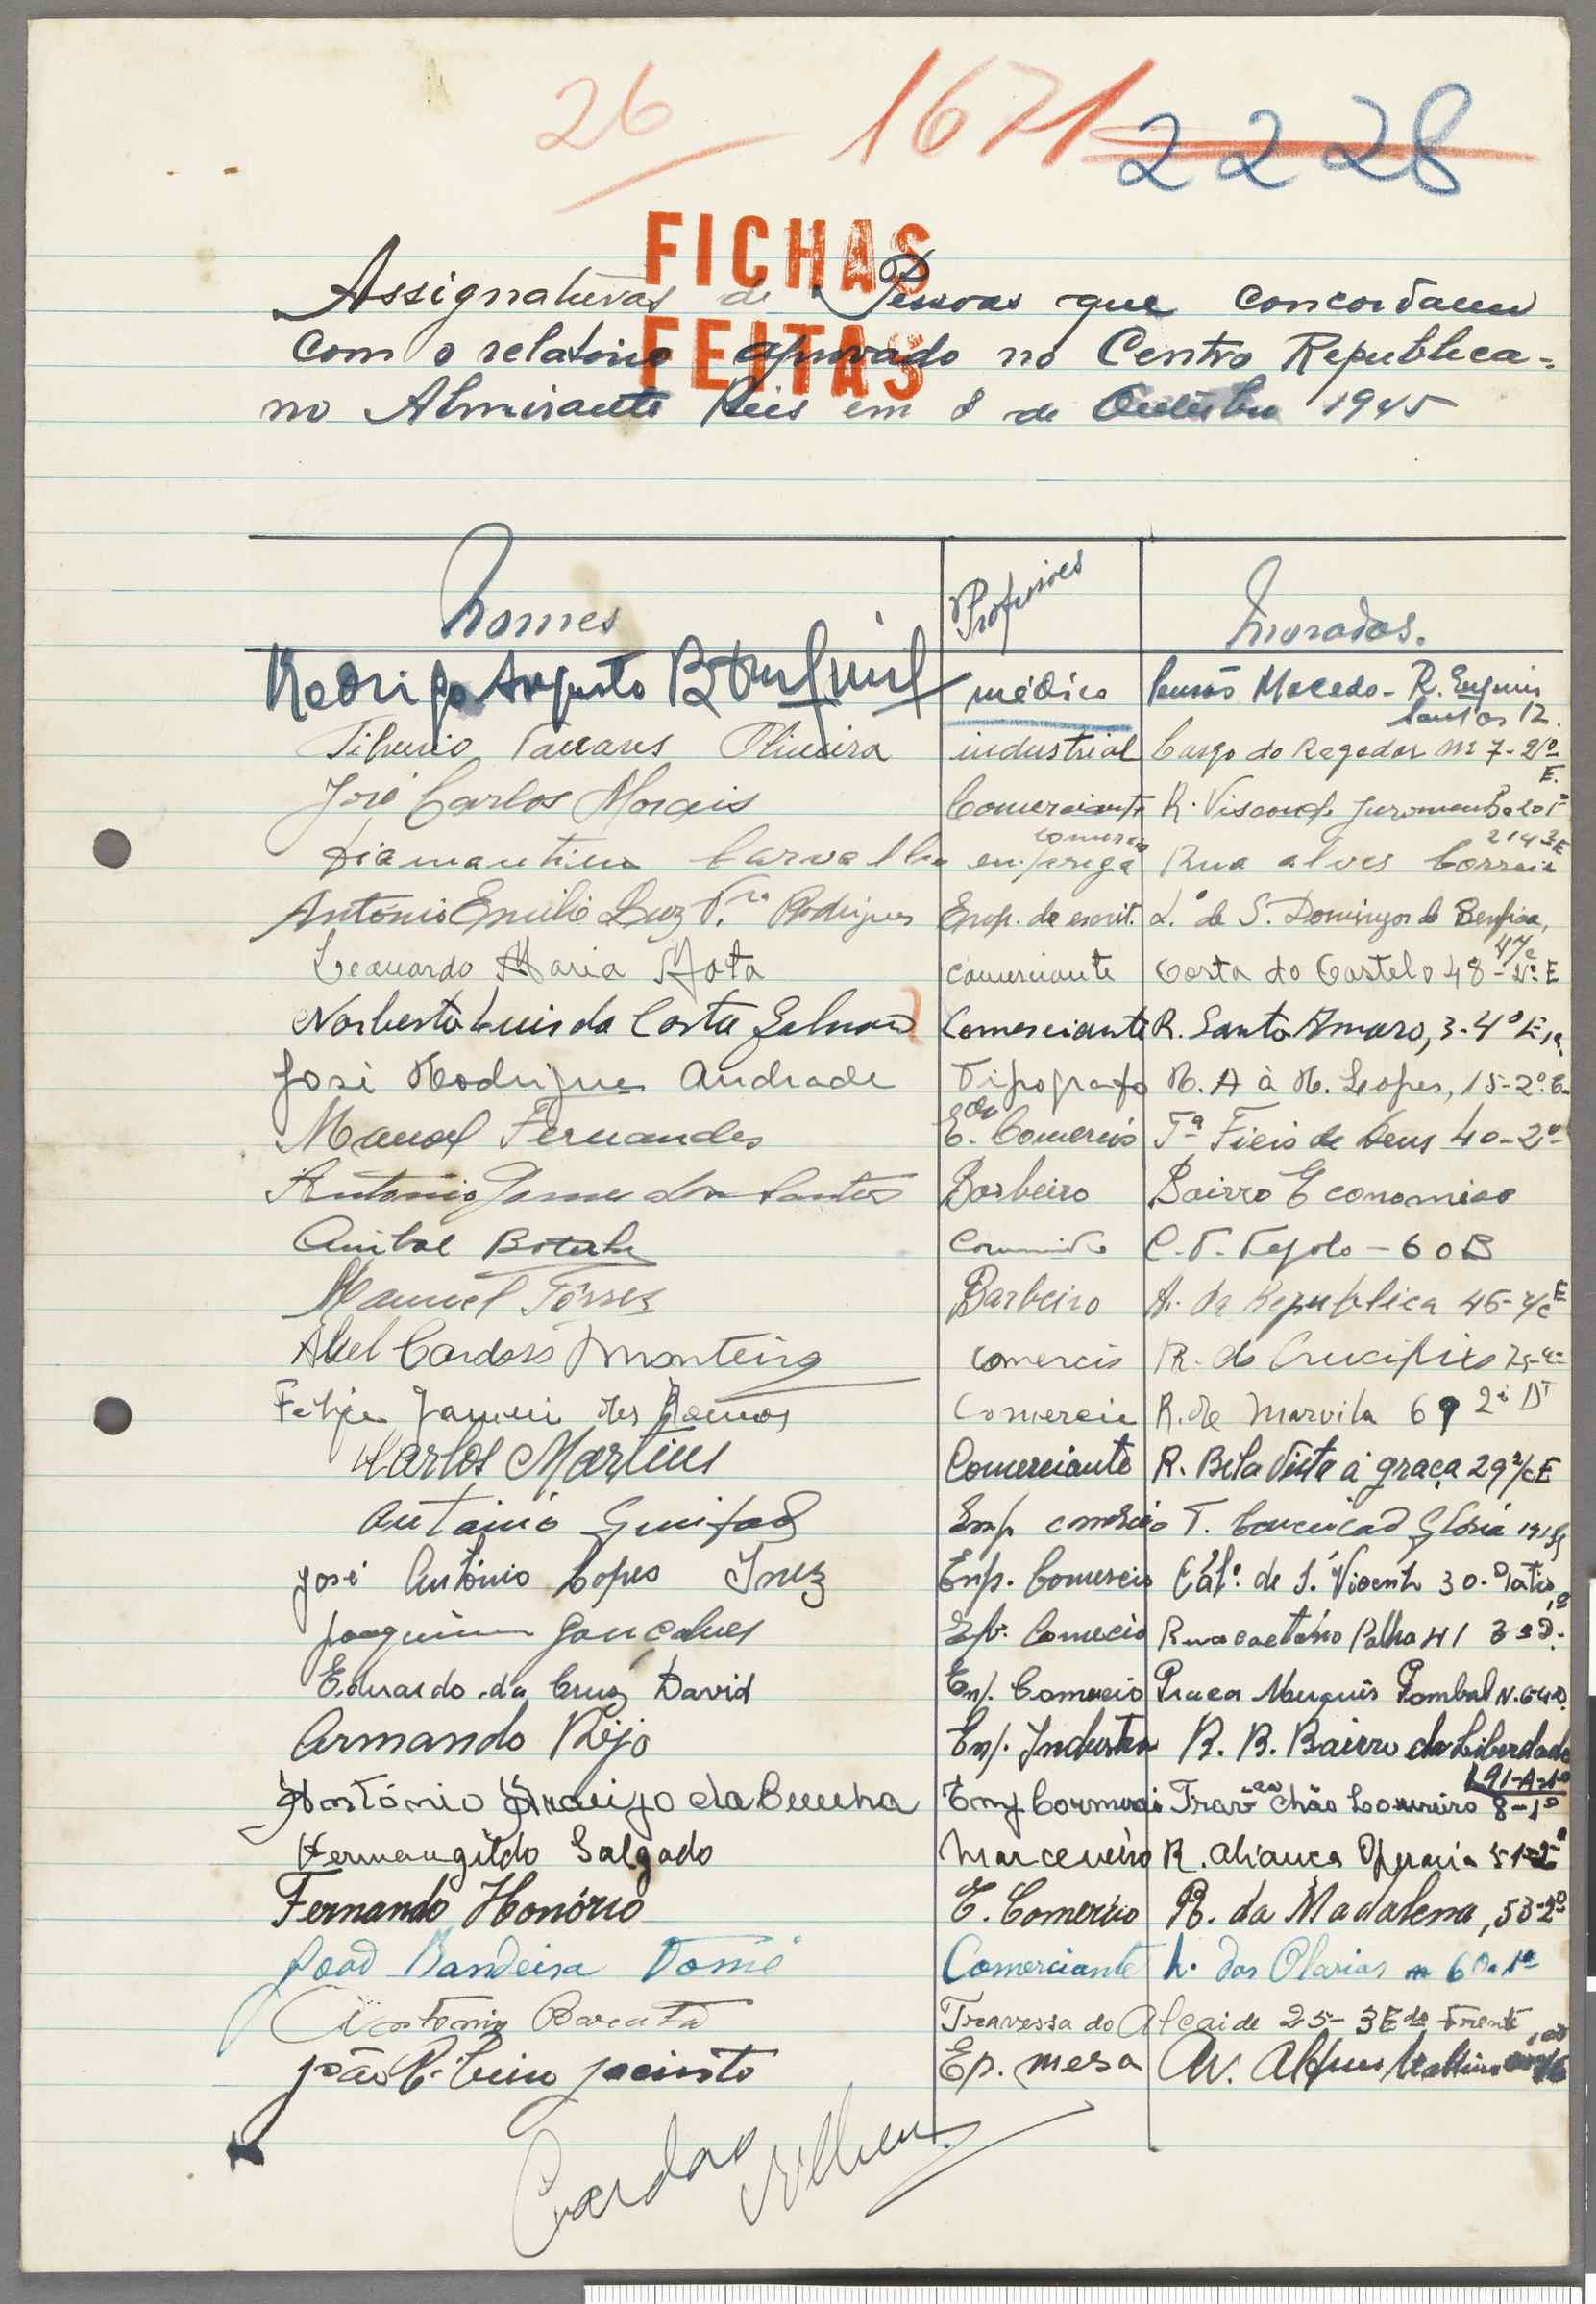 26
1671
2228
FICHAS
FEITAS
Assignaturas de Pessoas que concordam
com o relatorio aprovado no Centro Republica-
no Almirante Reis em 8 de 1945
Nomes Profissões Moradas.
Rodrigo Augusto médico Macedo - R. Eugenio
Santos 12.
Tiburio Tavares Oliveira industrial Largo do Regedor nº 7-2º
E.
José Carlos Morais Comerciante R. Visconde Juromenha
Carvalho comercio
empregª Rua alves Correia
António Emilio Luz Rodrigues Emp. de escrit. L.º de S. Domingos de Benfica,
Leonardo Maria Mota comerciante Costa do Castelo 48-2º E
Norberto Luis da Costa Comerciante R. Santo Amaro, 3-4º
José Rodrigues Andrade Tipografo R. A à R. Lopes, 15-2º E.
Manoel Fernandes E. do Comercio Tª Fieis de Deus 40-2º
Antonio dos Santos Barbeiro Bairro Economico
Anibal Botelho 60B
Manuel Tôrres Barbeiro A. da Republica 46-r/c E
Abel Cardoso Monteiro comercio R. do Crucifixo
Felipe dos Ramos Comercio R. de Marvila 69 2º Dt
Carlos Martins Comerciante R. Bela Vista à graça 29 r/c E
António Emp comércio T. Glória
José António Lopes Inez Emp. Comercio Calç. de S. Vicente 30. Patio
Joaquim Gonçalves Ep. Comercio Rua Caetano Palha 41 3º D.
Eduardo da Cruz David Emp. Comercio Praça Marquês Pombal N. 6
Armando Rijo Emp. Industria R. B. Bairro da Liberdade
António Araujo da Cunha Emp Comercio Trav Chão Loureiro 8-1º
Hermengildo Salgado Marceneiro R. aliança Operaria 51-2º
Fernando Honório E. Comercio R. da Madalena, 53-2º
João Bandeira Tomé Comerciante L. das Olarias 60-1º
Antonio Barata Travessa do Alcaide 25-3 Edo Frente
João Ribeiro Jacinto Ep. mesa Av.